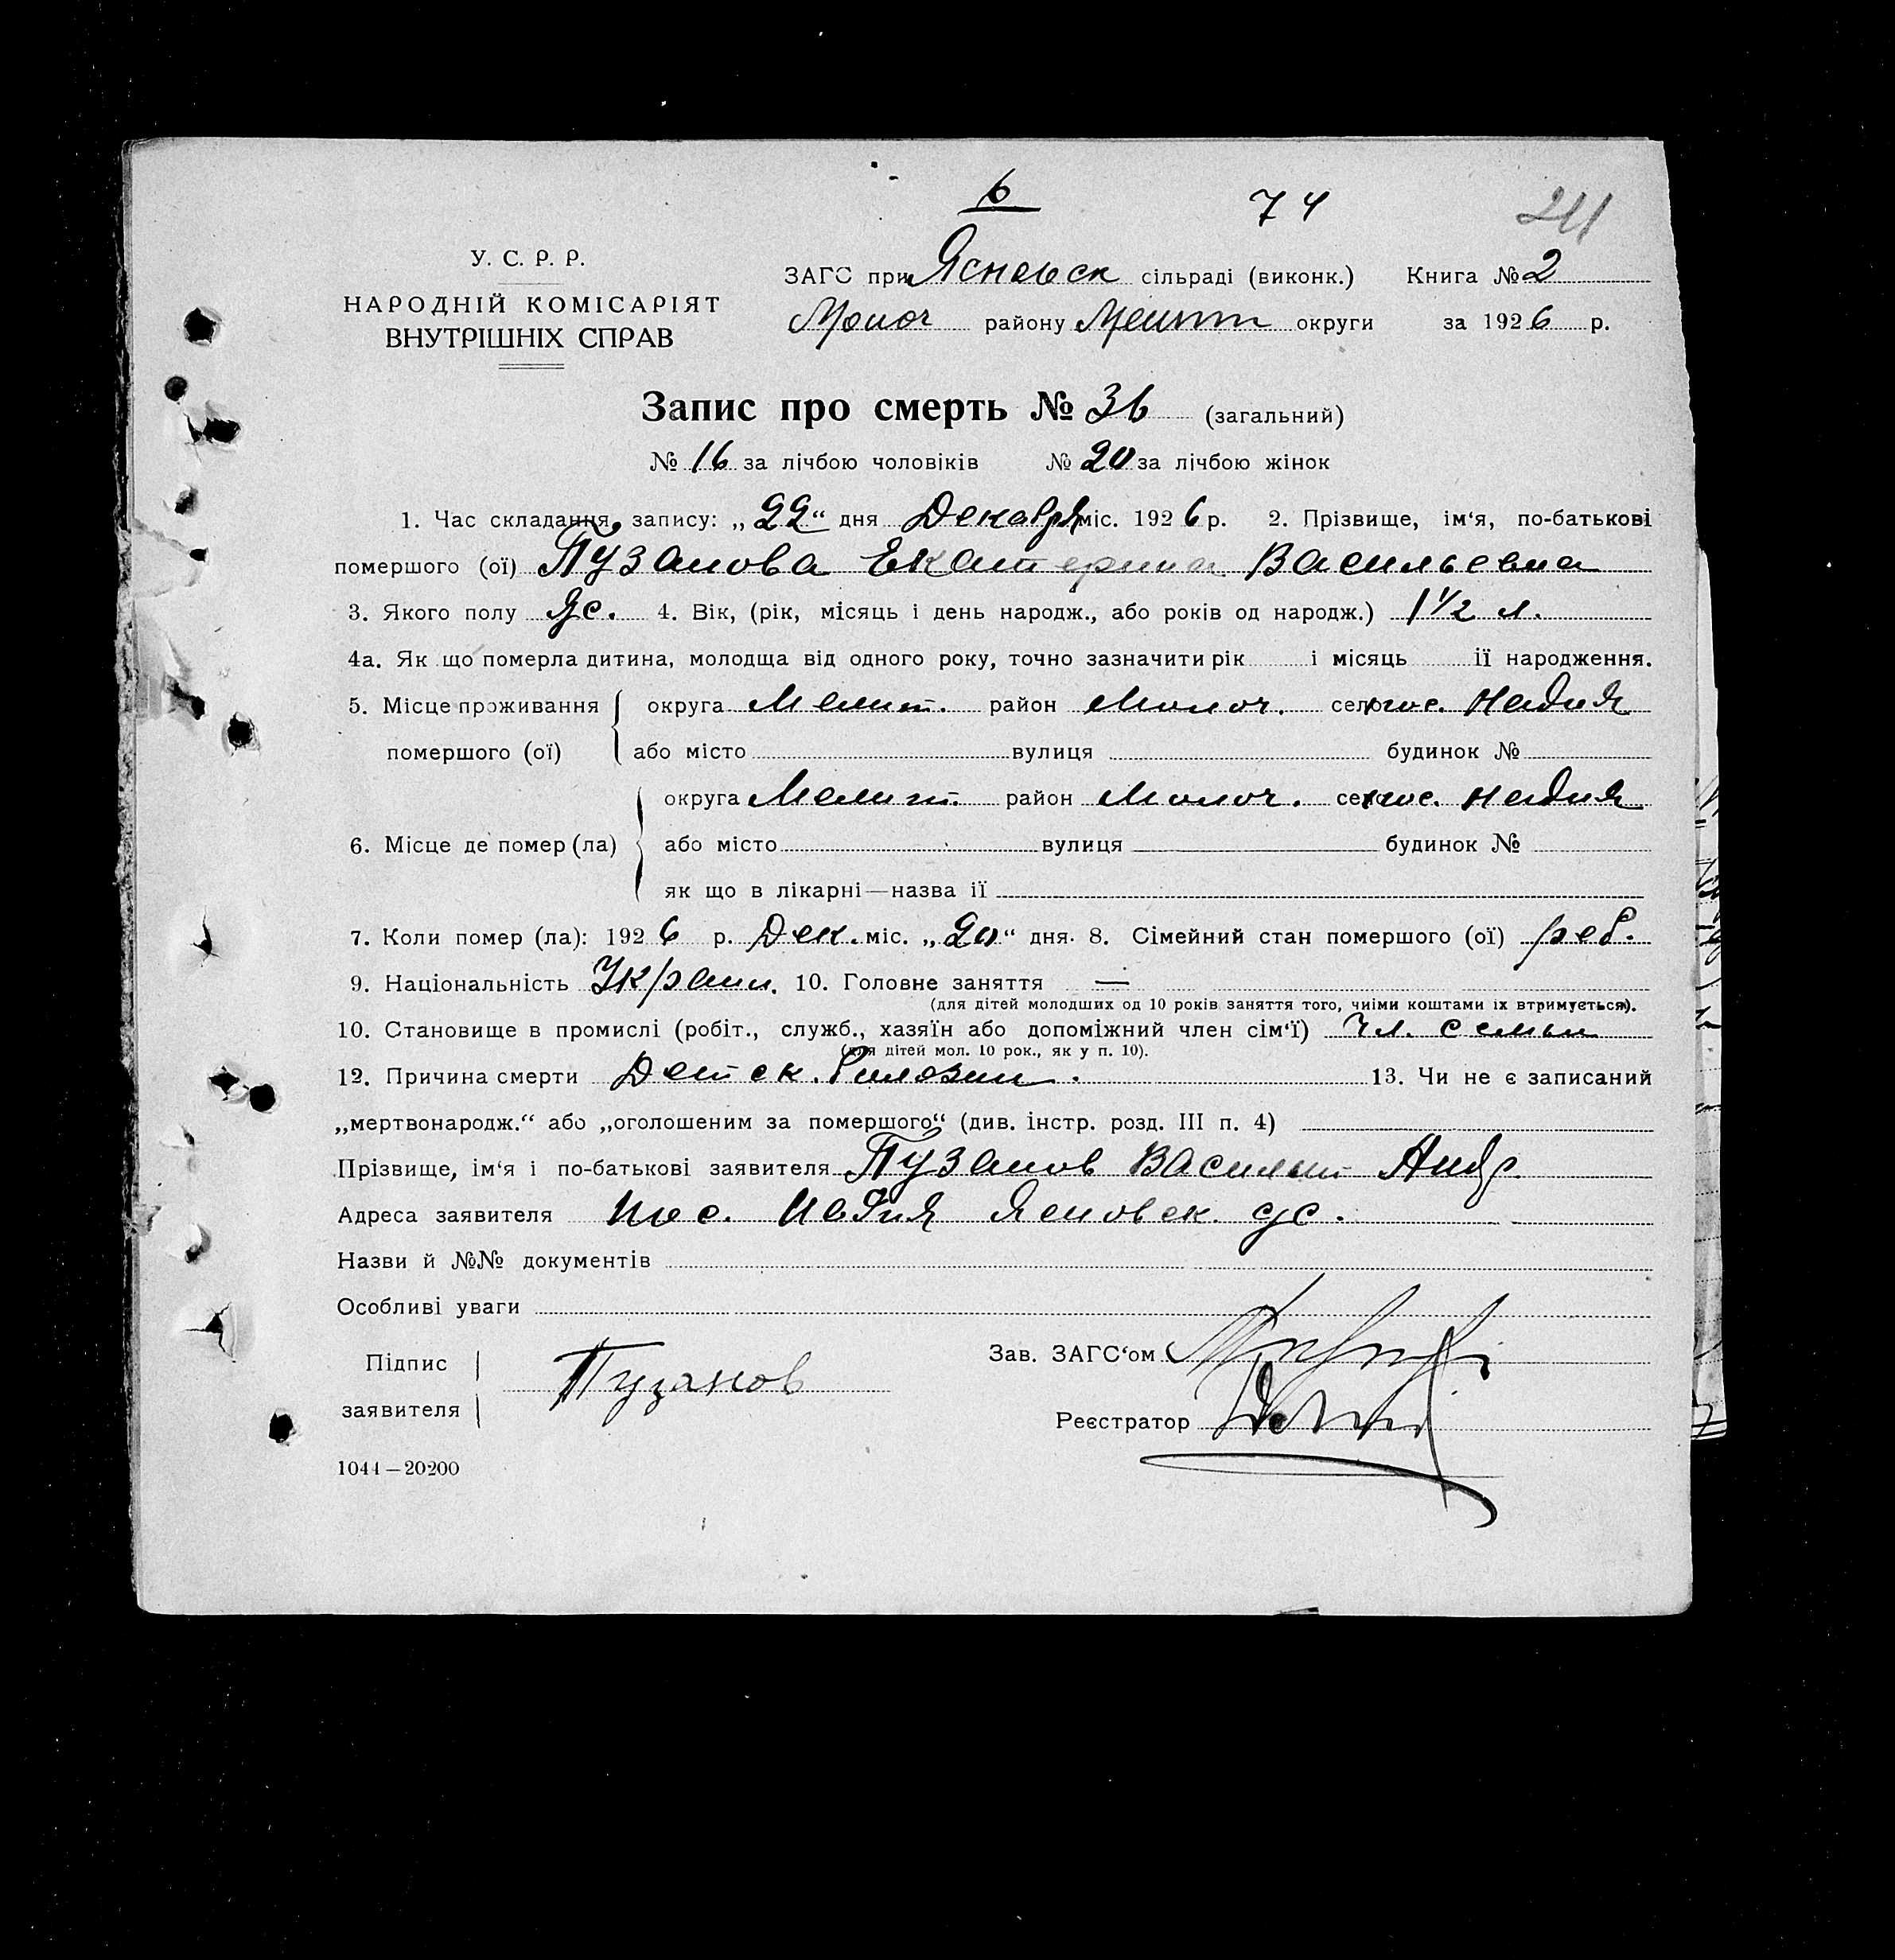 6 74 241
У. С. Р. Р.
НАРОДНІЙ КОМІСАРІЯТ
ВНУТРІШНІХ СПРАВ
ЗАГС при Ясновск сільраді (виконк.) Книга № 2
Молоч району Мелит округи за 1926 р.
Запис про смерть № 36 (загальний)
№ 16 за лічбою чоловіків № 20 за лічбою жінок
1. Час складання запису: „22“ дня Декабря міс. 1926 р. 2. Прізвище, ім‘я, по-батькові
помершого (ої) Пузанова Екатерина Васильевна
3. Якого полу ж. 4. Вік, (рік, місяць і день народж., або років од народж.) 1 1/2 л.
4а. Як що померла дитина, молодща від одного року, точно зазначити рік і місяць її народження.
5. Місце проживання помершого (ої) округа Мелит. район Молоч. село пос. Надия
або місто вулиця будинок №
6. Місце де помер (ла) округа Мелит. район Молоч. село пос. Надия
або місто вулиця будинок №
як що в лікарні—назва її
7. Коли помер (ла): 1926 р. Дек. міс. „20“ дня. 8. Сімейний стан помершого (ої) реб.
9. Національність Украин. 10. Головне заняття —
(для дітей молодших од 10 років заняття того, чиїми коштами їх втримується).
10. Становище в промислі (робіт., служб., хазяїн або допоміжний член сім‘ї) чл. семьи
(для дітей мол. 10 рок., як у п. 10).
12. Причина смерти Детск. 13. Чи не є записаний
„мертвонародж.“ або „оголошеним за помершого“ (див. інстр. розд. III п. 4)
Прізвище, ім‘я і по-батькові заявителя Пузанов Василий Андр.
Адреса заявителя пос. Надия Ясновск. с/с.
Назви й №№ документів
Особливі уваги
Підпис заявителя Пузанов
Зав. ЗАГС‘ом
Реєстратор
1044—20200